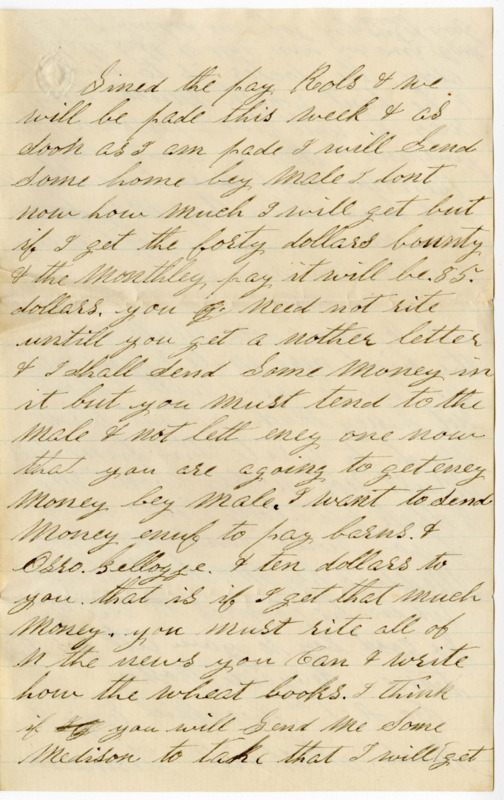 Sined the pay Rols & we
will be pade this week & as
soon as I am pade I will Send
Some home bey Male I dont
now how much I will get but
if I get the forty dollars bounty
& the Monthley pay it will be .85.
dollars. you need not rite
untill you get a nother letter
& I shall Send Some Money in
it but you must tend to the
Male & not lett eney one now
that you are agoing to get eney
Money bey Male. I want to Send
Money enuf to pay barns. &
& ten dollars to
you. that is if I get that much
Money. you must rite all of
the news you Can & write
how the wheat books. I think
if you will Send Me Some
Medison to take that I will get